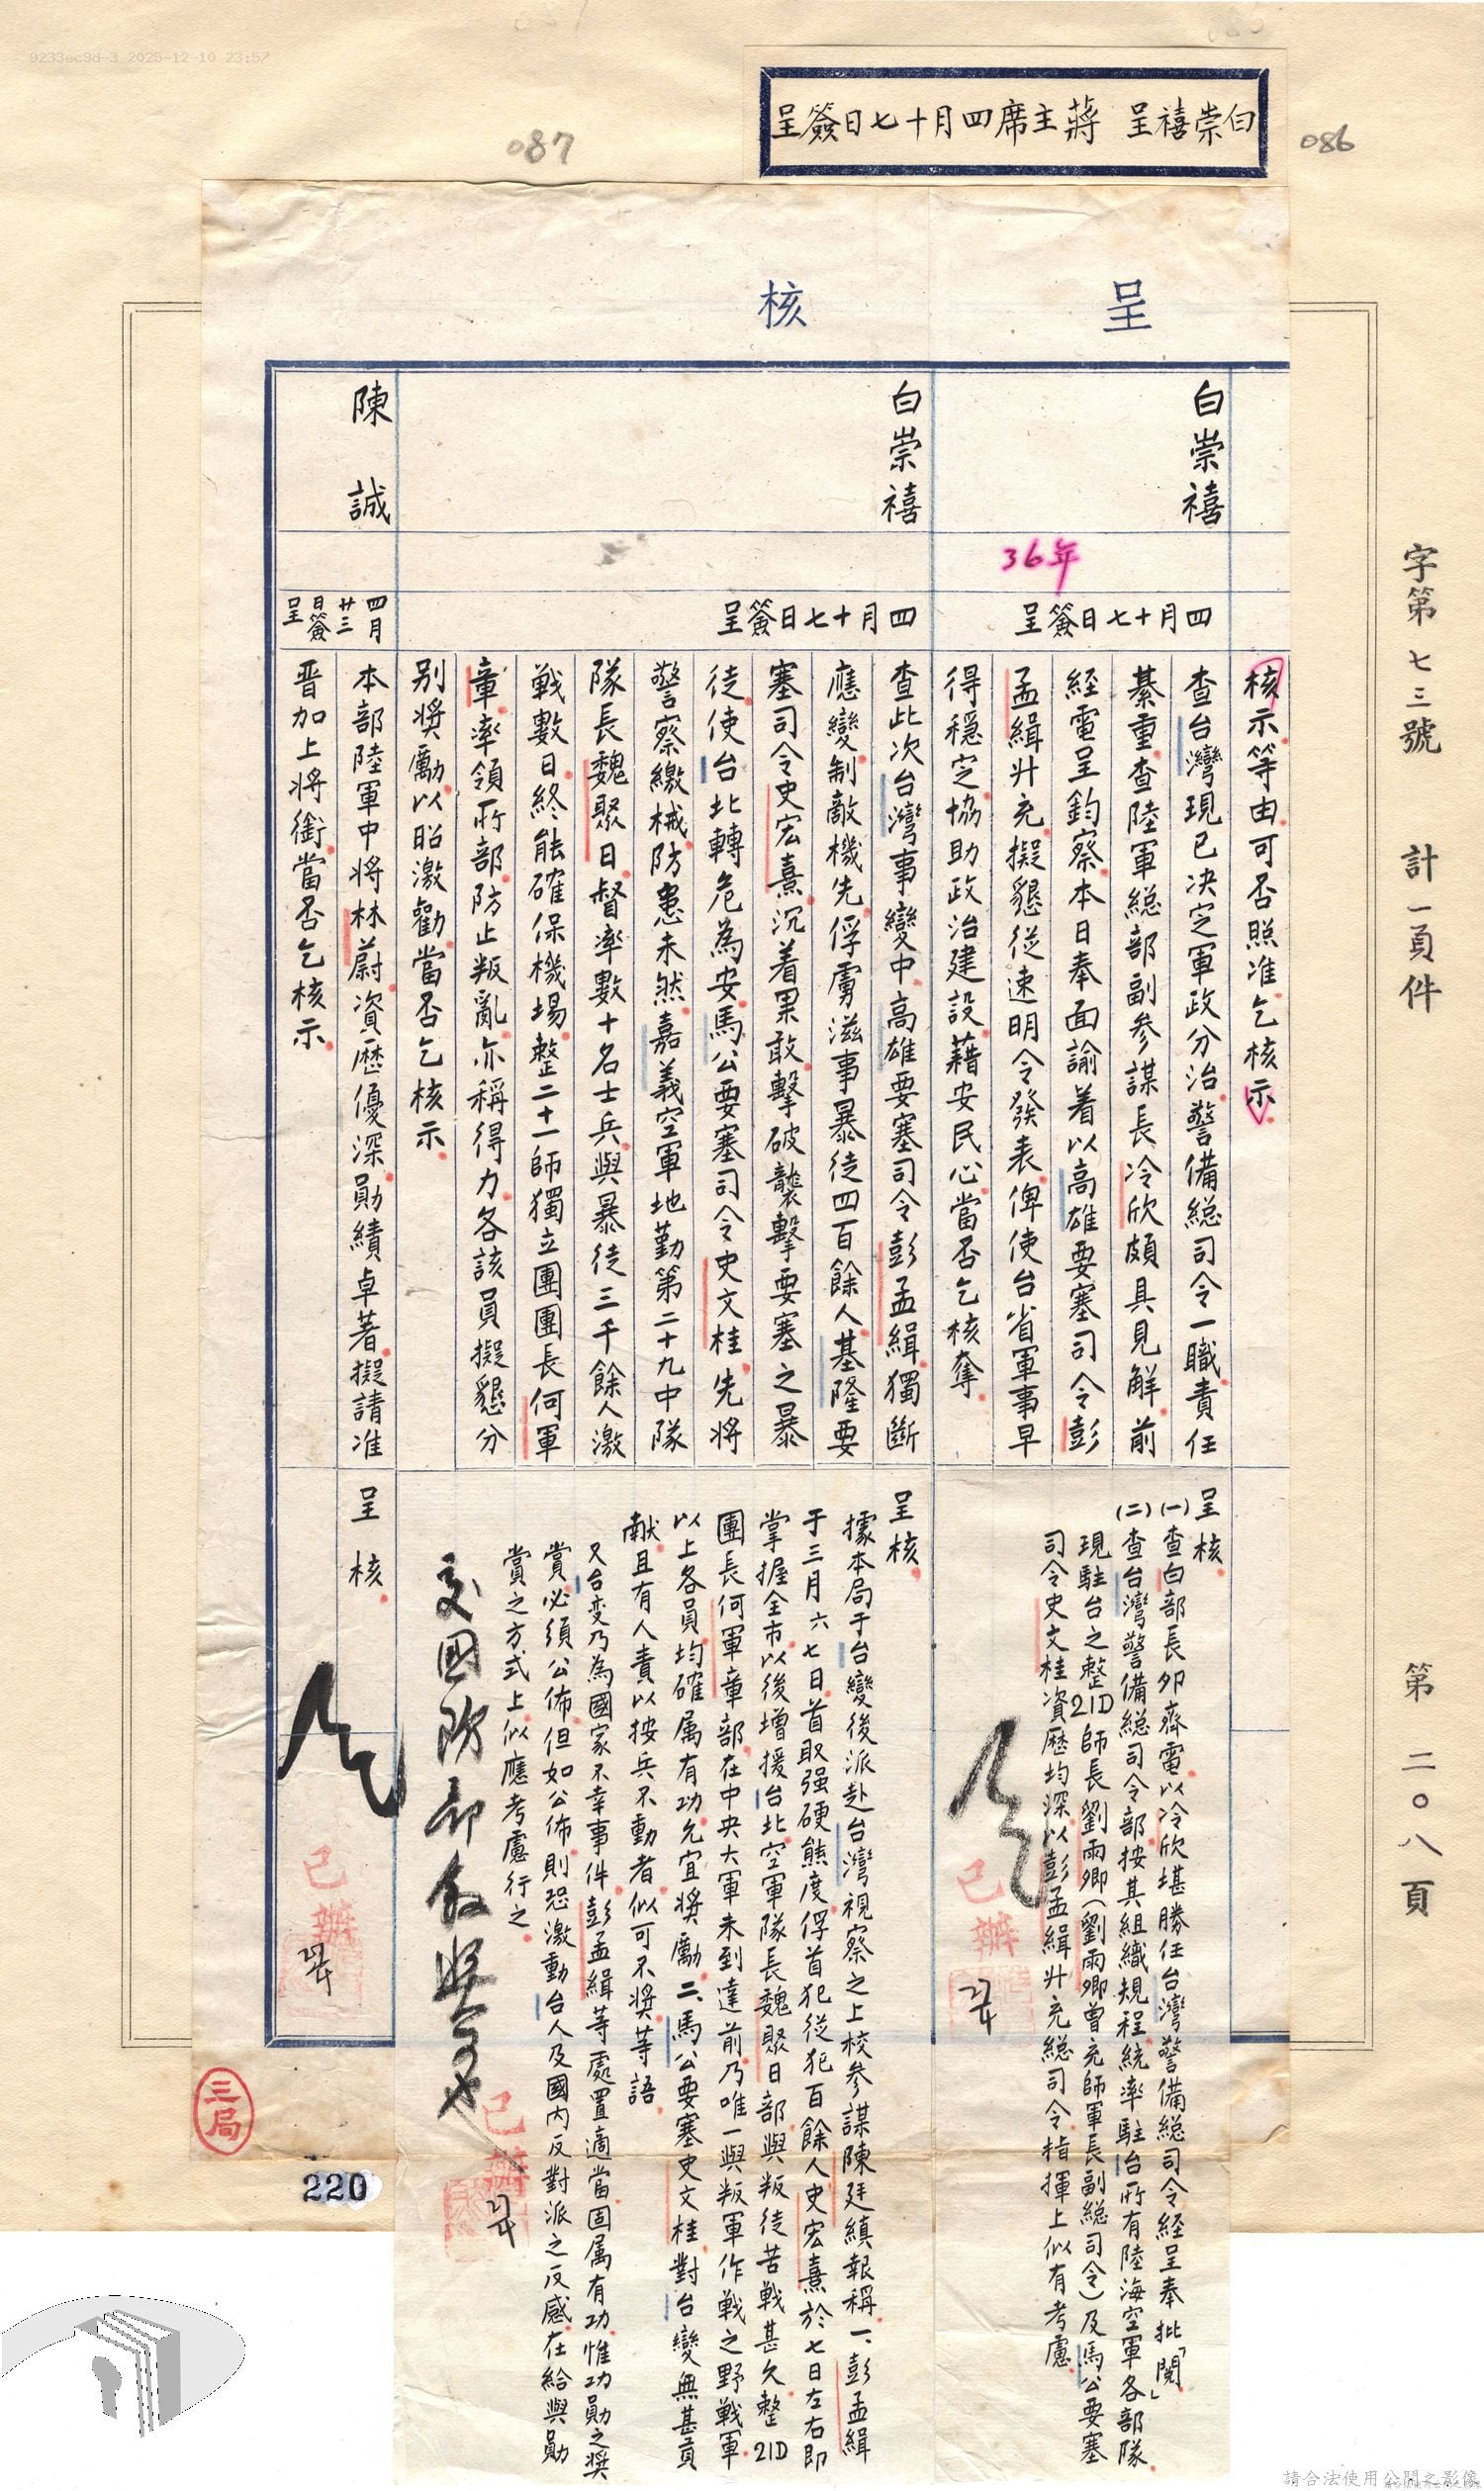 9233ec9d-3 2025-12-10 23:57
白崇禧呈 蔣主席四月十七日簽呈
086
087
字第七三號 計一頁件 第二〇八頁
呈核
核示等由可否照准乞核示
白崇禧
36年
四月十七日簽呈
查台灣現已決定軍政分治警備総司令一職責任
綦重查陸軍総部副參謀長冷欣頗具見解前
経電呈鈞察本日奉面諭着以高雄要塞司令彭
孟緝升充擬懇従速明令發表俾使台省軍事早
得穩定協助政治建設藉安民心當否乞核奪
呈核
(一)查白部長卯齊電以冷欣堪勝任台灣警備総司令経呈奉批「閱」
(二)查台灣警備総司令部按其組織規程統率駐台所有陸海空軍各部隊
現駐台之整21D師長劉雨卿(劉雨卿曾充師軍長副総司令)及馬公要塞
司令史文桂資歷均深以彭孟緝升充総司令指揮上似有考慮
已辦
白崇禧
四月十七日簽呈
查此次台灣事變中高雄要塞司令彭孟緝獨斷
應變制敵機先俘虜滋事暴徒四百餘人基隆要
塞司令史宏熹沉着果敢擊破襲擊要塞之暴
徒使台北轉危為安馬公要塞司令史文桂先將
警察繳械防患未然嘉義空軍地勤第二十九中隊
隊長魏聚日督率數十名士兵與暴徒三千餘人激
戰數日終能確保機場整二十一師獨立團團長何軍
章率領所部防止叛亂亦稱得力各該員擬懇分
別獎勵以昭激勸當否乞核示
呈核
據本局于台變後派赴台灣視察之上校參謀陳廷縝報稱一、彭孟緝
于三月六七日首取强硬態度俘首犯従犯百餘人史宏熹於七日左右即
掌握全市以後增援台北空軍隊長魏聚日部與叛徒苦戰甚久整21D
團長何軍章部在中央大軍未到達前乃唯一與叛軍作戰之野戰軍
以上各員均確属有功允宜獎勵二、馬公要塞史文桂對台變無甚貢
献且有人責以按兵不動者似可不獎等語
又台变乃為國家不幸事件彭孟緝等處置適當固属有功惟功勛之獎
賞必須公佈但如公佈則恐激動台人及國内反對派之反感在給與勛
賞之方式上似應考慮行之
交國防部敘獎可也
已辦
陳誠
四月廿三日簽呈
本部陸軍中將林蔚資歷優深勛績卓著擬請准
晋加上將銜當否乞核示
呈核
已辦
三局
220
請合法使用公開之影像